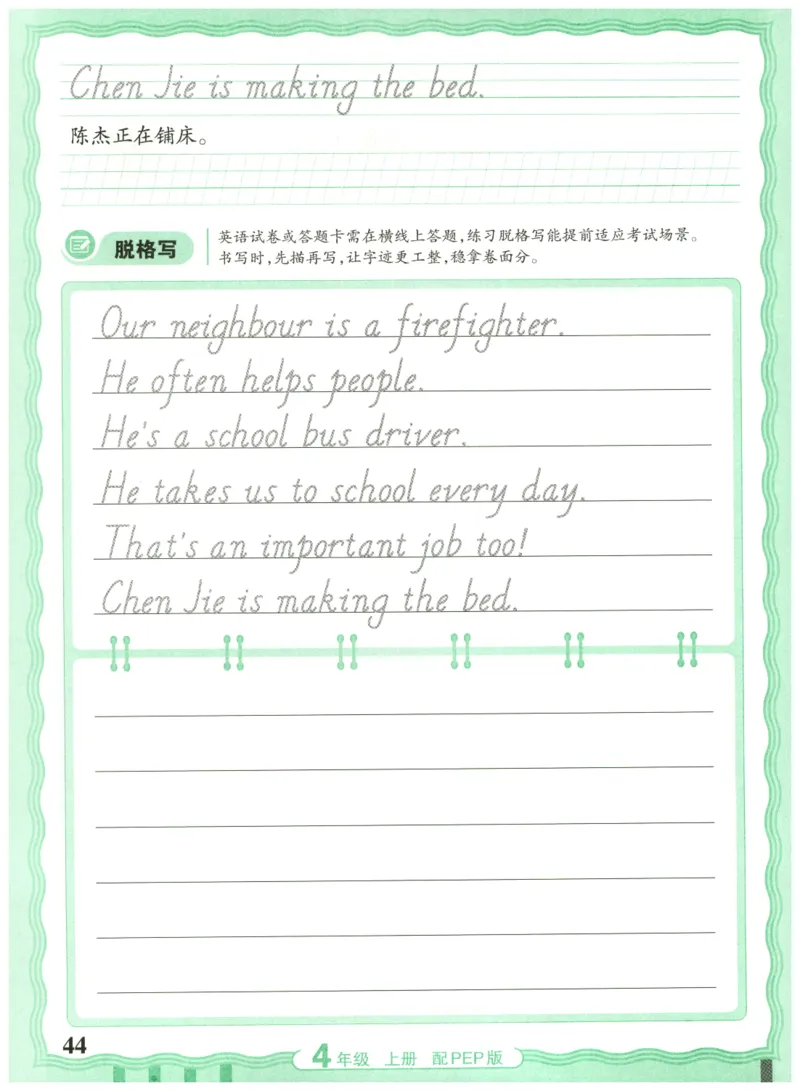 Chen Jie is making the bed.
陈杰正在铺床。
脱格写
英语试卷或答题卡需在横线上答题,练习脱格写能提前适应考试场景。
书写时,先描再写,让字迹更工整,稳拿卷面分。
Our neighbour is a firefighter.
He often helps people.
He's a school bus driver.
He takes us to school every day.
That's an important job too!
Chen Jie is making the bed.
44
4年级 上册 配PEP版